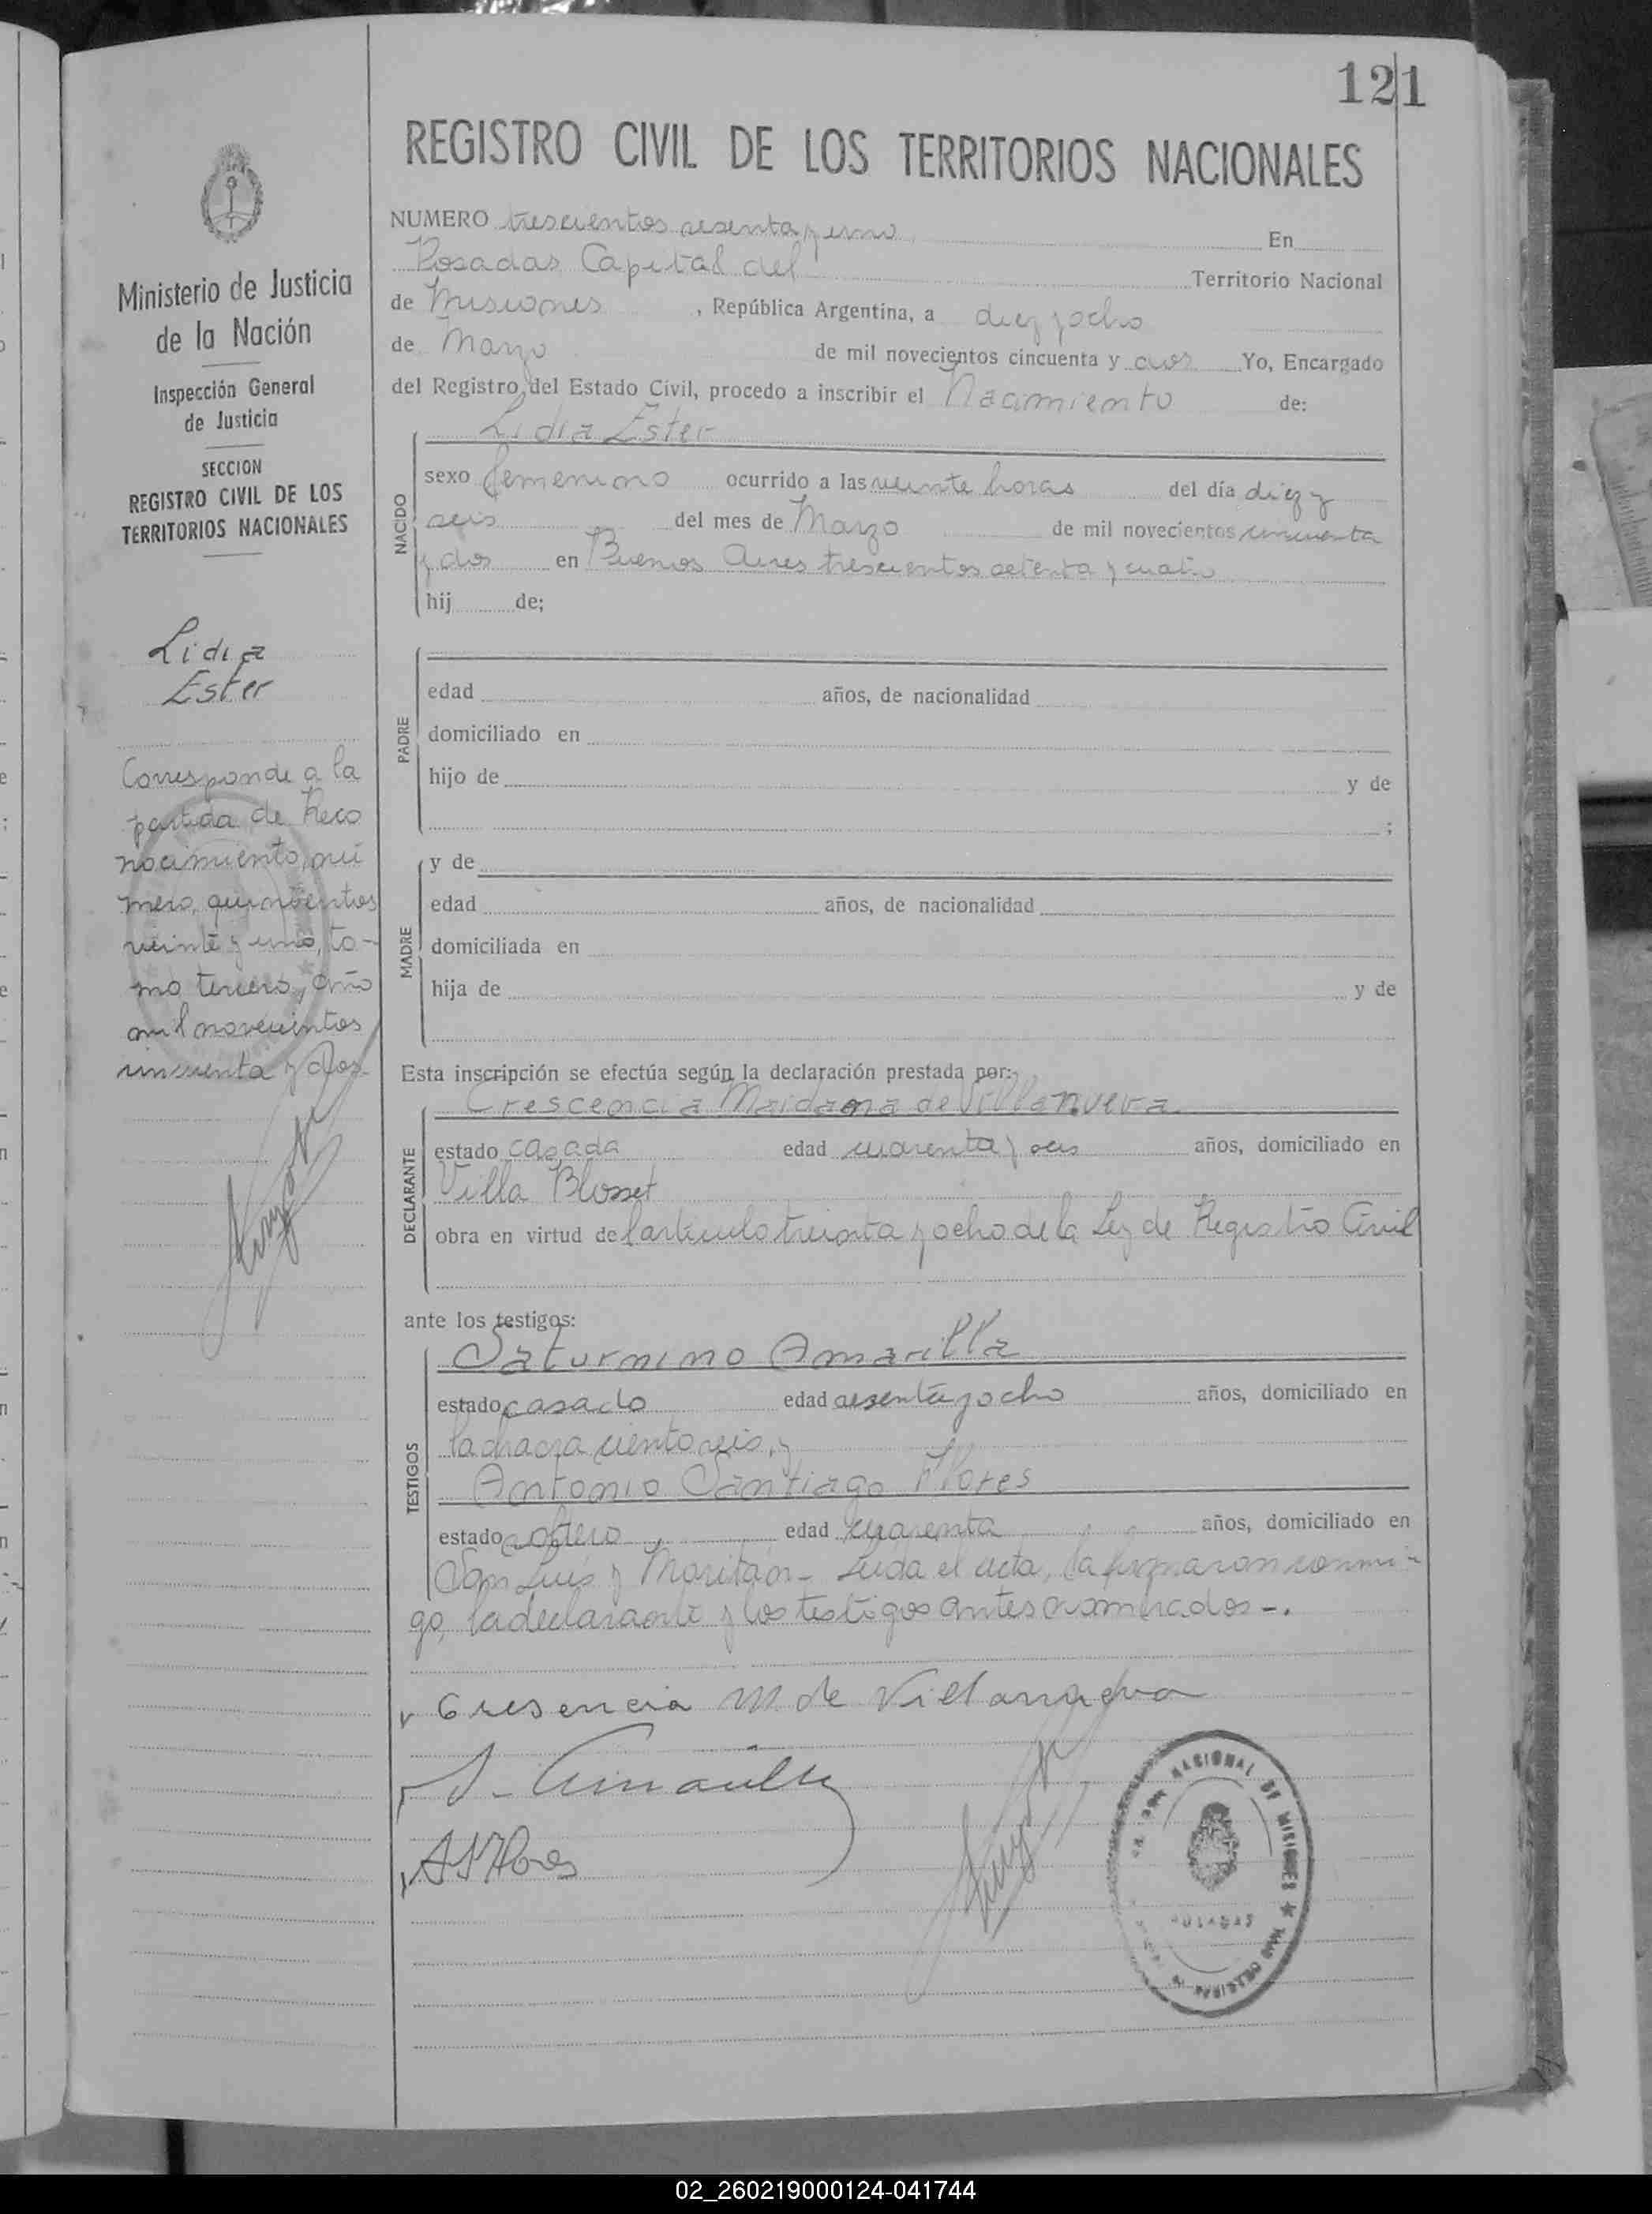 121
REGISTRO CIVIL DE LOS TERRITORIOS NACIONALES
Ministerio de Justicia
de la Nación
Inspección General
de Justicia
SECCION
REGISTRO CIVIL DE LOS
TERRITORIOS NACIONALES
Lidia
Ester
Corresponde a la
partida de Reco
nocimiento nú
mero, quinientos
veinte y uno, to-
mo tercero, año
mil novecientos
cincuenta y dos
NUMERO trescientos sesenta y uno En
Posadas Capital del Territorio Nacional
de Misiones , República Argentina, a diez y ocho
de Marzo de mil novecientos cincuenta y dos Yo, Encargado
del Registro del Estado Civil, procedo a inscribir el Nacimiento de:
NACIDO
Lidia Ester
sexo femenino ocurrido a las veinte horas del día diez y
seis del mes de Marzo de mil novecientos cincuenta
y dos en Buenos Aires trescientos setenta y cuatro
hij de;
PADRE
edad años, de nacionalidad
domiciliado en
hijo de y de
;
MADRE
y de
edad años, de nacionalidad
domiciliada en
hija de y de
Esta inscripción se efectúa según la declaración prestada por:
DECLARANTE
Crescencia Maidana de Villanueva
estado casada edad cuarenta y seis años, domiciliado en
Villa Blosset
obra en virtud del artículo treinta y ocho de la Ley de Registro Civil
ante los testigos:
TESTIGOS
Saturnino Amarilla
estado casado edad sesenta y ocho años, domiciliado en
la chacra ciento seis, y
Antonio Santiago Flores
estado soltero edad cuarenta años, domiciliado en
San Luis y Moritán - Leida el acta, la firmaron conmi-
go, la declarante y los testigos antes nombrados -.
Cresencia M de Villanueva
S. Amarilla
ASFlores
NACIONAL DE MISIONES
POSADAS
02_260219000124-041744